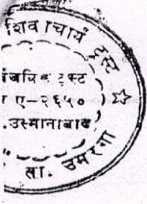 शिवाचार्य ट्रस्ट
ट्रस्ट
ए-२६५०
उस्मानाबाद
ता. उमरगा